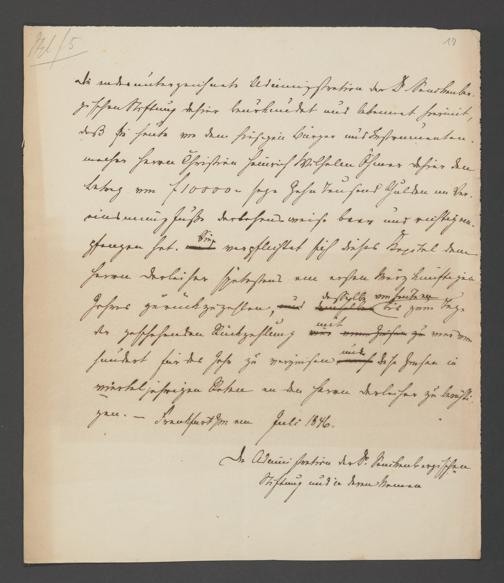 19
Die endesunterzeichnete Administration der Dr. Senckenber-
gischen Stiftung dahier beurkundet und bekennt hiermit,
daß sie heute von dem hiesigen Bürger und Instrumenten-
macher Herrn Christian Heinrich Wilhelm dahier den
Betrag von f 10000 sage Zehn Tausend Gulden im Ver-
einsmünzfuße darlehensweise baar und richtig em-
pfangen hat. Sie verpflichtet sich dieses Kapital dem
Herrn Darleiher spätestens am ersten März künftigen
Jahres zurückzuzahlen, und dasselbe von heute an bis zum Tage
der geschehenden Rückzahlung mit vier vom
hundert für das Jahr zu verzinsen und diese Zinsen in
vierteljährigen Raten an den Herrn Darleiher zu berichti-
gen. — Frankfurt am Juli 1846.
Die Administration der Dr. Senckenbergischen
Stiftung und in deren Namen